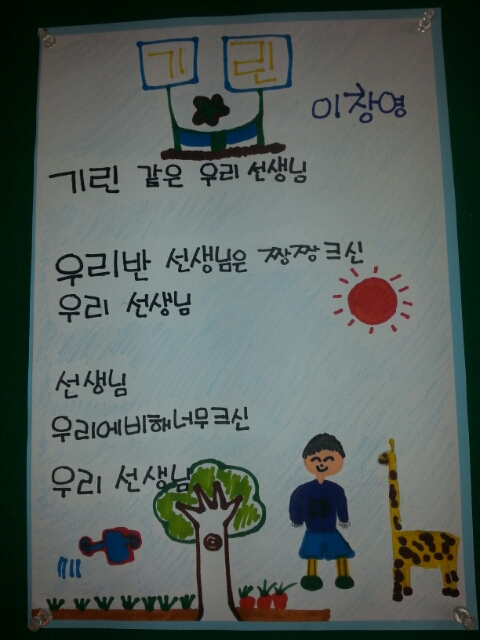 기린
이창영
기린 같은 우리 선생님
우리반 선생님은 짱짱 크신
우리 선생님
선생님
우리에비해너무크신
우리 선생님